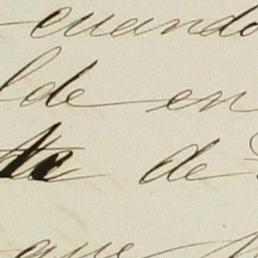 cuando
lde en
de
que